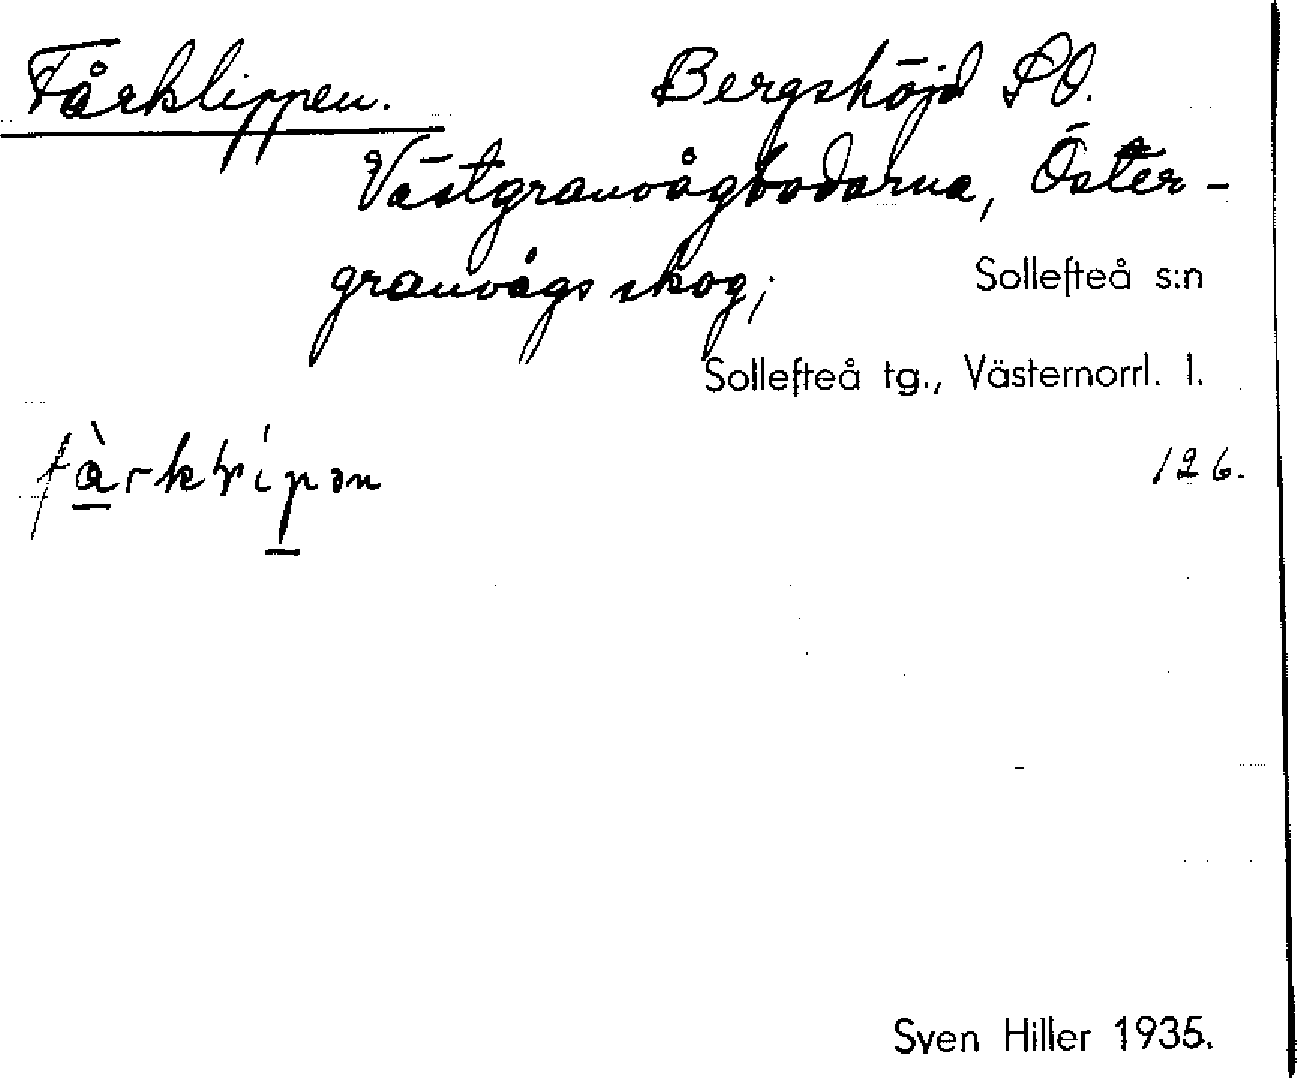 Fårklippen. Bergshöjd SO.
Västgranvågbodarna, Öster-
granvågs skog; Sollefteå s:n
Sollefteå tg., Västernorrl. l.
126.
Sven Hiller 1935.